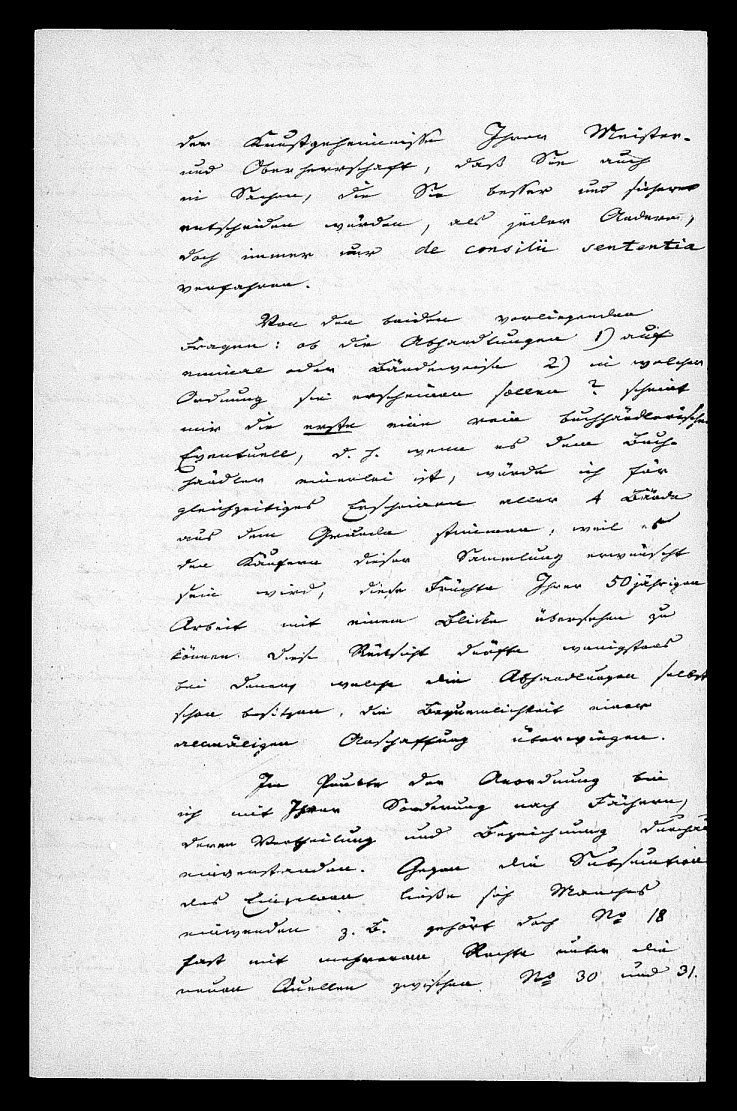 der Kunstgeheimnisse Ihrer Meister-
und Oberherrschaft, daß Sie auch
in Sachen, die Sie besser und sicherer
entscheiden würden, als jeder Andere,
doch immer nur de consilii sententia
verfahren.
Von den beiden vorliegenden
Fragen: ob die Abhandlungen 1) auf
einmal oder Bändeweise 2) in welcher
Ordnung sie erscheinen sollen? scheint
mir die erste eine rein buchhändlerische
Eventuell, d. h. wenn es dem Buch-
händler einerlei ist, würde ich für
gleichzeitiges Erscheinen aller 4 Bände
aus dem Grunde stimmen, weil es
den Käufern dieser Sammlung erwünscht
sein wird, diese Früchte Ihrer 50jährigen
Arbeit mit einem Blicke übersehen zu
können. Diese Rücksicht dürfte wenigstens
bei denen, welche die Abhandlungen selbst
schon besitzen, die Bequemlichkeit einer
allmäligen Anschaffung überwiegen.
Im Punkte der Anordnung bin
ich mit Ihrer Sonderung nach Fächern,
deren Vertheilung und Bezeichnung durchaus
einverstanden. Gegen die Subsumtion
des Einzelnen ließe sich Manches
einwenden z. B. gehört doch No 18
fast mit mehrerem Rechte unter die
neuen Quellen zwischen No 30 und 31.